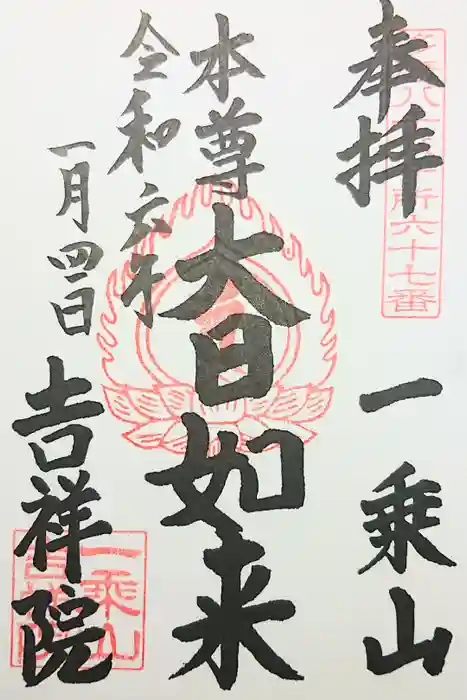 奉拝
一乗山
所六十七番
本尊
大日如来
令和六年
一月四日
吉祥院
一乗山
吉祥院